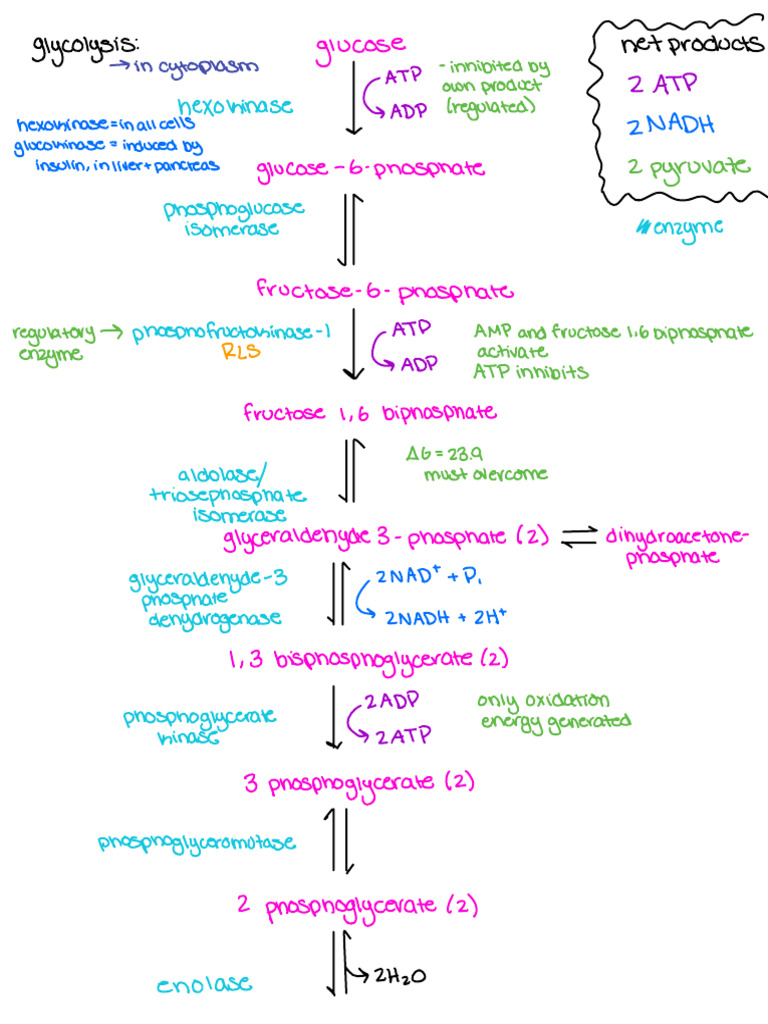 glycolysis:
→ in cytoplasm
glucose
ATP
ADP
- inhibited by
own product
(regulated)
net products
2 ATP
2 NADH
2 pyruvate
enzyme
hexokinase
hexokinase = in all cells
glucokinase = induced by
insulin, in liver + pancreas
glucose-6-phosphate
phosphoglucose
isomerase
fructose-6-phosphate
regulatory →
enzyme
phosphofructokinase-1
RLS
ATP
ADP
AMP and fructose 1,6 biphosphate
activate
ATP inhibits
fructose 1,6 biphosphate
ΔG = 23.9
must overcome
aldolase/
triosephosphate
isomerase
glyceraldehyde 3-phosphate (2)
dihydroacetone-
phosphate
glyceraldehyde-3
phosphate
dehydrogenase
2NAD⁺ + Pᵢ
2NADH + 2H⁺
1,3 bisphosphoglycerate (2)
phosphoglycerate
kinase
2ADP
2ATP
only oxidation
energy generated
3 phosphoglycerate (2)
phosphoglyceromutase
2 phosphoglycerate (2)
enolase
2H₂O